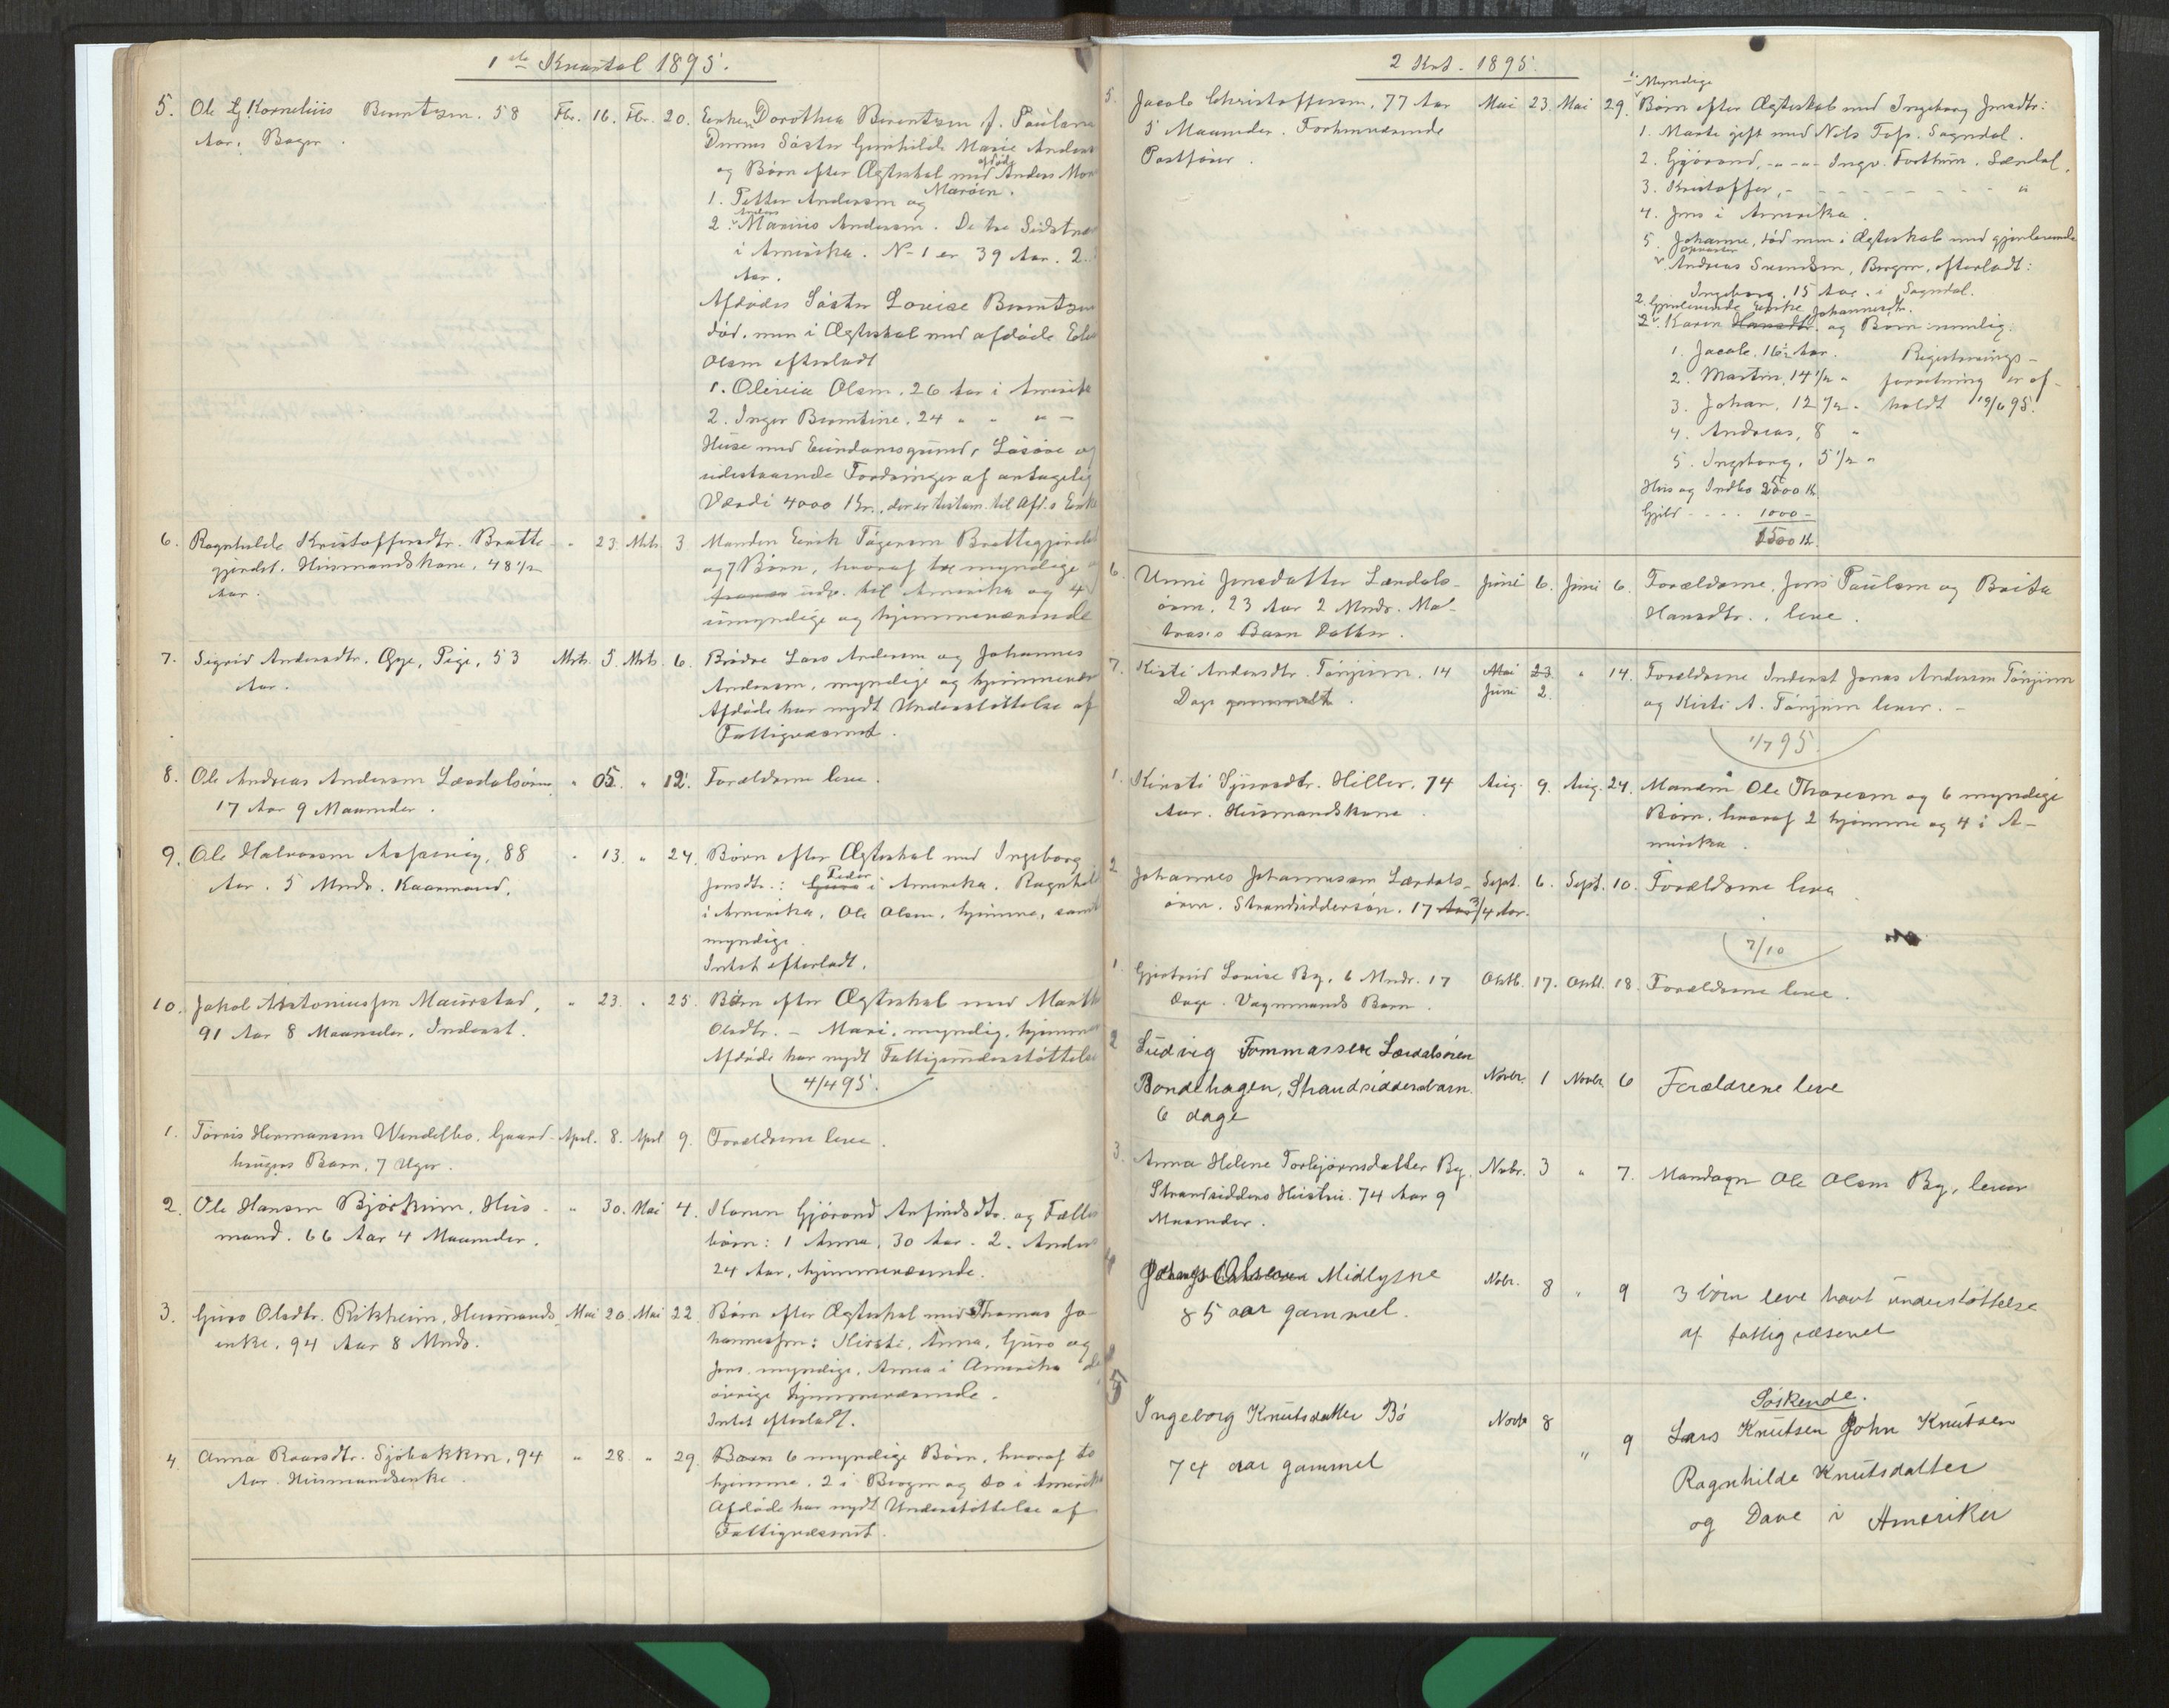 1ste Kvartal 1895.
5. Ole Kornelius Berentsen. 58 Fbr. 16. Fbr. 20. Enken Dorothea Berentsen f. Paulsen
Aar. Bager. Dennes Søster Gunhilde Marie Anders
og Børn efter Ægteskab med afdøde Anders
Marøen.
1. Petter Andersen og
2. Anders Marius Andersen. De tre Sidstnæ
i Amerika. No 1 er 39 Aar. 2.
Aar.
Afdødes Søster Lovise Berentsen
død, men i Ægteskab med afdøde
Olsen efterladt
1. Olevia Olsen. 26 Aar i Amerika
2. Inger Berentine. 24 " " "
Huse med Eiendomsgrund, Løsøre og
udestaaende Fordringer af antagelig
Værdi 4000 Kr., der er testam. til Afd.s Enke
6. Ragnhilde Kristoffersdtr. Bratte- " 23. Mrts. 3. Manden Erik Bratteg
gjerdet. Husmandskone, 48 1/2 og 7 Børn, hvoraf tre myndige
Aar. til Amerika og 4
umyndige og hjemmeværende
7. Sigrid Andersdtr. Øye, Pige, 53 Mrts. 5. Mrts. 6. Brødre Lars Andersen og Johannes
Aar. Andersen, myndige og hjemmevær
Afdøde har nydt Understøttelse af
Fattigvæsenet.
8. Ole Andreas Andersen Lærdalsøren " 05. " 12. Forældrene leve.
17 Aar 9 Maaneder.
9. Ole Halvorsen 88 " 13. " 24. Børn efter Ægteskab med Ingeborg
Aar. 5 Mndr. Kaarmand. Jensdtr.: Peder i Amerika. Ragnhild
i Amerika, Ole Olsen, hjemme, samt
myndige.
Intet efterladt.
10. Jakob Antoniussen Maurstad, " 23. " 25. Børn efter Ægteskab med Marth
91 Aar 8 Maaneder. Inderst. Olsdtr. – Mari, myndig, hjemme
Afdøde har nydt Fattigunderstøttelse
4/4 95.
1. Hermansen Vindedbo, Gaard- Apl. 8. April 9. Forældrene leve.
brugers Barn, 7 Uger.
2. Ole Hansen Bjørkum. Hus- " 30. Mai 4. Konen Gjørond Anfindsdtr. og Fælles
mand. 66 Aar 4 Maaneder. børn: 1 Anna, 30 Aar. 2. Anders
24 Aar, hjemmeværende.
3. Guro Olsdtr. Rikheim, Husmands- Mai 20. Mai 22. Børn efter Ægteskab med Thomas Jo-
enke, 94 Aar 8 Mndr. hannessen: Kirsti, Anna, Guro og
Jens, myndige, Anna i Amerika de
øvrige hjemmeværende.
Intet efterladt.
4. Anna Sjøbakken, 94 " 28. " 29. 6 myndige Børn, hvoraf to
Aar. Husmandsenke. hjemme, 2 i Bergen og to i Amerik
Afdøde har nydt Understøttelse af
Fattigvæsenet.
2 Kvt. 1895.
5. Jacob Christoffersen, 77 Aar Mai 23. Mai 29. Myndige
Børn efter Ægteskab med Ingeborg Jensdtr:
5 Maaneder. Forhenværende
Postfører.
1. Marte gift med Nils Sogndal.
2. Gjørond, -"-"- Ingv. Lærdal.
3. Kristoffer, - - - - - - - "
4. Jens i Amerika.
5. Johanne, død men i Ægteskab med gjenlevende
Andreas Svendsen, Bergen, efterladt:
Ingeborg, 15 Aar. i Sogndal.
2. Gjenlevende Enke
Karen Hansdtr. Johannesdtr. og Børn nemlig:
1. Jacob. 16 1/2 Aar. Registrerings-
2. Martin, 14 1/2 " forretning er af-
3. Johan, 12 1/2 " holdt 19/6 95.
4. Andreas, 8 "
5. Ingeborg, 5 1/2 "
Hus og Indbo 2500 Kr.
Gjæld - - - 1000 -
1500 Kr.
6. Unni Jensdatter Lærdals- Juni 6. Juni 6. Forældrene, Jens Paulsen og Brita
øren, 23 Aar 2 Mndr. Mat- Hansdtr., leve.
ros's Barn Datter.
7. Kirsti Andersdtr. Tønjum. 14 Mai 23. " 14. Forældrene Inderst Jonas Andersen Tønjum
Juni 2.
Dage gammelt. og Kirsti A. Tønjum lever. –
1/7 95.
1. Kirsti Sjursdtr. Hiller. 74 Aug. 9. Aug. 24. Manden Ole Thoresen og 6 myndige
Aar. Husmandskone. Børn, hvoraf 2 hjemme og 4 i A-
merika.
2 Johannes Johannessen Lærdals- Sept. 6. Sept. 10. Forældrene leve
øren. Strandsiddersøn. 17 3/4 Aar.
7/10
1. Gjertrud Lovise By, 6 Mndr. 17 Oktb. 17. Oktb. 18. Forældrene leve.
Dage. Vognmands Barn.
2 Ludvig Tommassen Lærdalsøren
Bondehagen, Strandsiddersbarn. Novbr. 1 Novbr. 6 Forældrene leve
6 dage
3. Anna Helene Torbjørnsdatter By. Novbr. 3 " 7. Ole Olsen By, lever
Strandsidders Hustru. 74 Aar 9
Maaneder.
4 Olsen Midlysne Novbr. 8 " 9 3 børn leve havt understøttelse
85 aar gammel. af fattigvæsenet
5 Ingeborg Knutsdatter Bø Novb 8 " 9 Søskende.
74 aar gammel
Lars Knutsen John Knutsen
Ragnhilde Knutsdatter
og Dave i Amerika